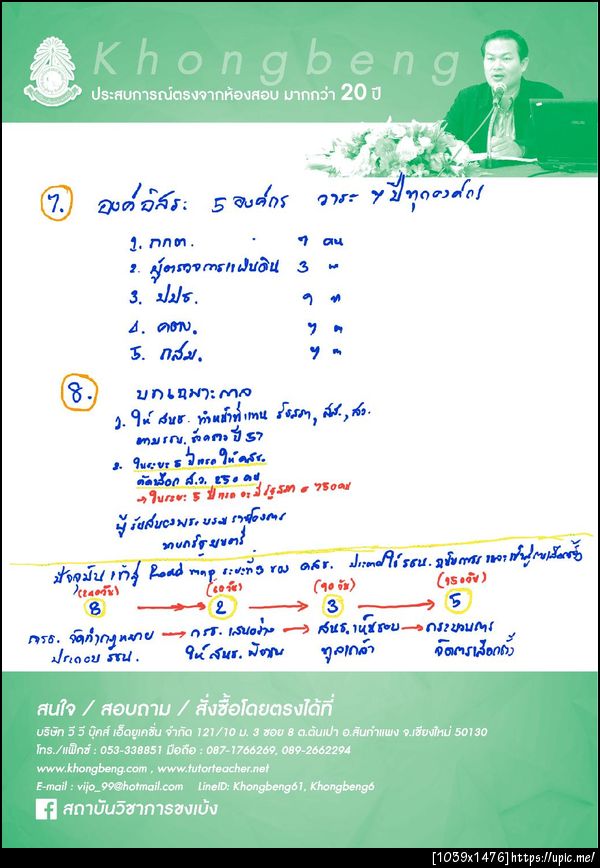 Khongbeng
ประสบการณ์ตรงจากห้องสอบ มากกว่า 20 ปี
7. องค์อิสระ 5 องค์กร วาระ 7 ปีทุกองค์กร
1. กกต. 7 คน
2. ผู้ตรวจการแผ่นดิน 3 "
3. ปปช. 9 "
4. คตง. 7 "
5. กสม. 7 "
8. บทเฉพาะกาล
1. ให้ สนช. ทำหน้าที่แทน รัฐสภา, สส., สว.
ตาม รธน. ชั่วคราว ปี 57
2. ในระยะ 5 ปีแรก ให้ คสช.
คัดเลือก ส.ว. 250 คน
→ ในระยะ 5 ปีแรก จะมีรัฐสภา = 750 คน
ผู้รับสนองพระบรมราชโองการ
นายกรัฐมนตรี
ปัจจุบัน เข้าสู่ Road map ระยะที่ 3 ของ คสช. ประกาศใช้ รธน.
(240 วัน) (60 วัน) (90 วัน) (150 วัน)
8 → 2 → 3 → 5
กรธ. จัดทำกฎหมาย → กรธ. เสนอร่าง → สนช. เห็นชอบ → กระบวนการ
ประกอบ รธน. ให้ สนช. ทูลเกล้า จัดการเลือกตั้ง
สนใจ / สอบถาม / สั่งซื้อโดยตรงได้ที่
บริษัท วี วี บุ๊คส์ เอ็ดยูเคชั่น จำกัด 121/10 ม. 3 ซอย 8 ต.ต้นเปา อ.สันกำแพง จ.เชียงใหม่ 50130
โทร./แฟ็กซ์ : 053-338851 มือถือ : 087-1766269, 089-2662294
www.khongbeng.com , www.tutorteacher.net
E-mail : vijo_99@hotmail.com LineID: Khongbeng61, Khongbeng6
สถาบันวิชาการขงเบ้ง
[1059x1476]https://upic.me/